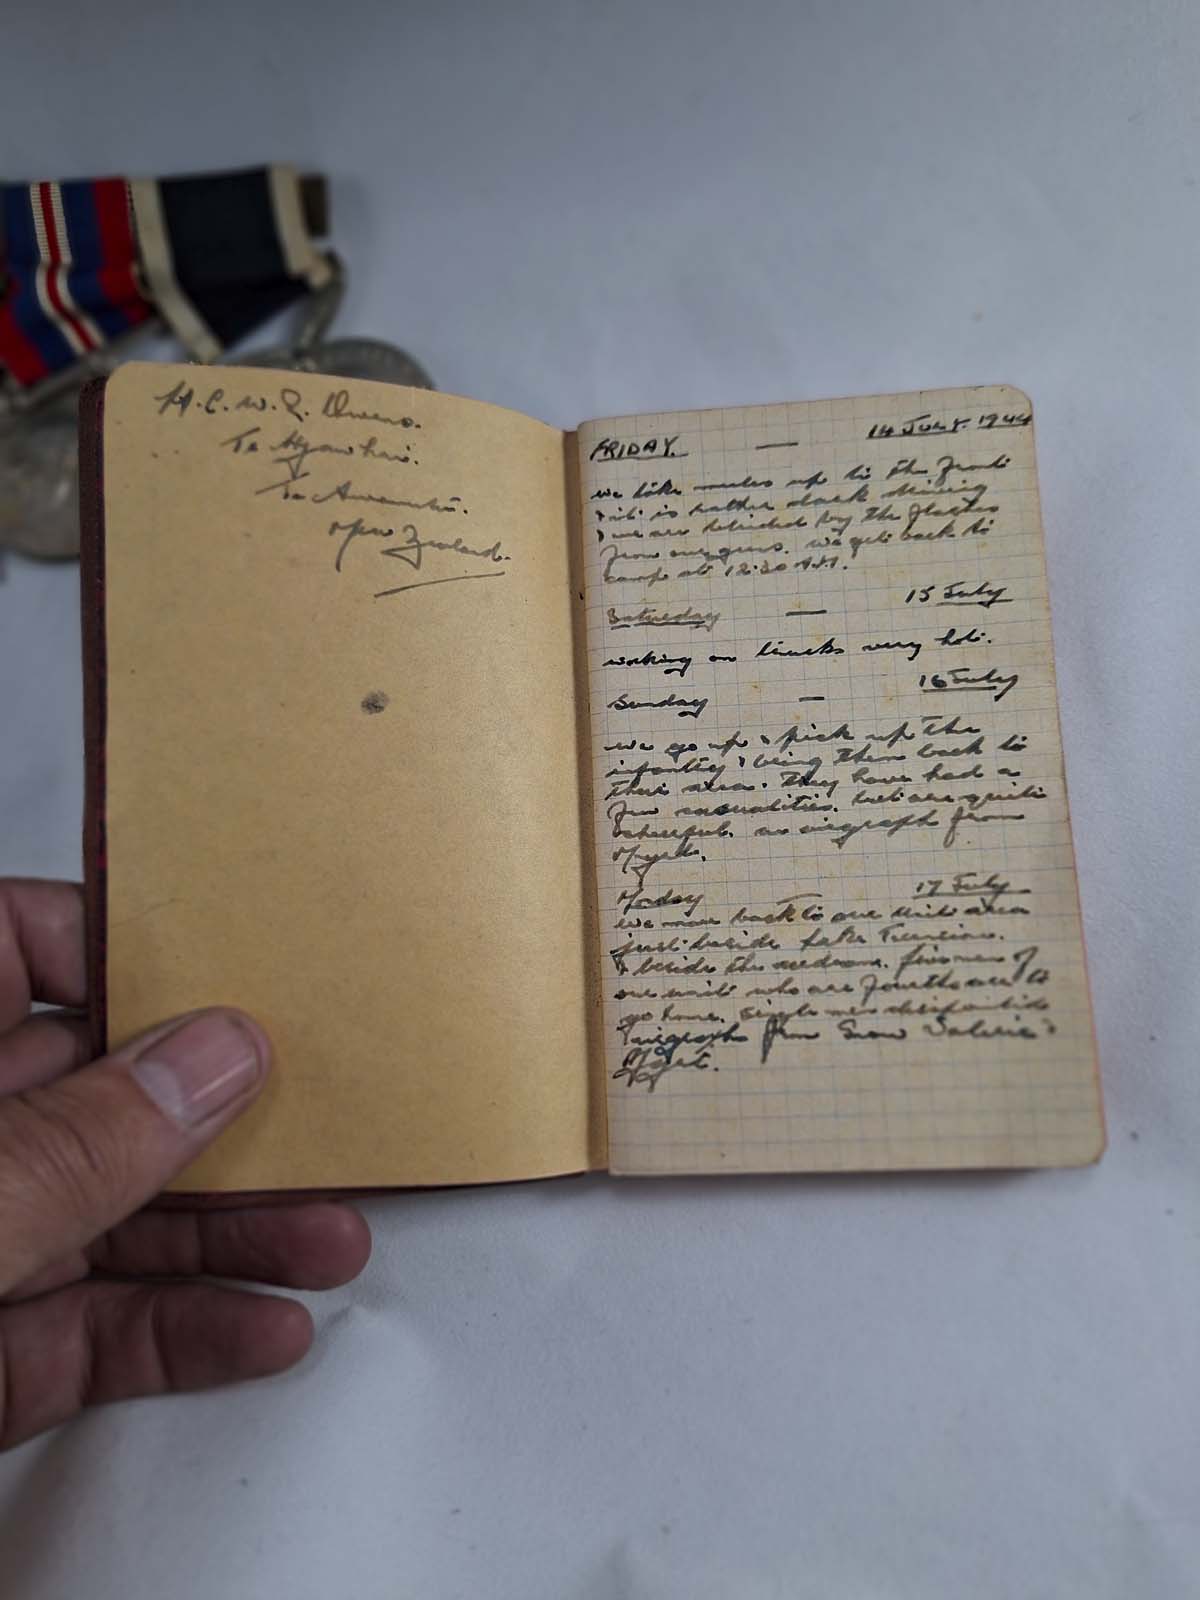 H.C.W.L. Owens.
Te
Te
New Zealand.
FRIDAY. — 14 JULY 1944
we take mules up to the front
& it is rather dark driving
& we are blinded by the flashes
from our guns. we get back to
camp at 12.30 A.M.
Saturday — 15 July
working on trucks very hot.
Sunday — 16 July
we go up & pick up the
infantry & bring them back to
their area. they have had a
few casualities. but are quite
cheerful. an airgraph from
Monday 17 July
we move back to our unit area
just beside lake
& beside the. five men of
our unit who are fourths are to
go home. single men
airgraphs from Snow Valerie &